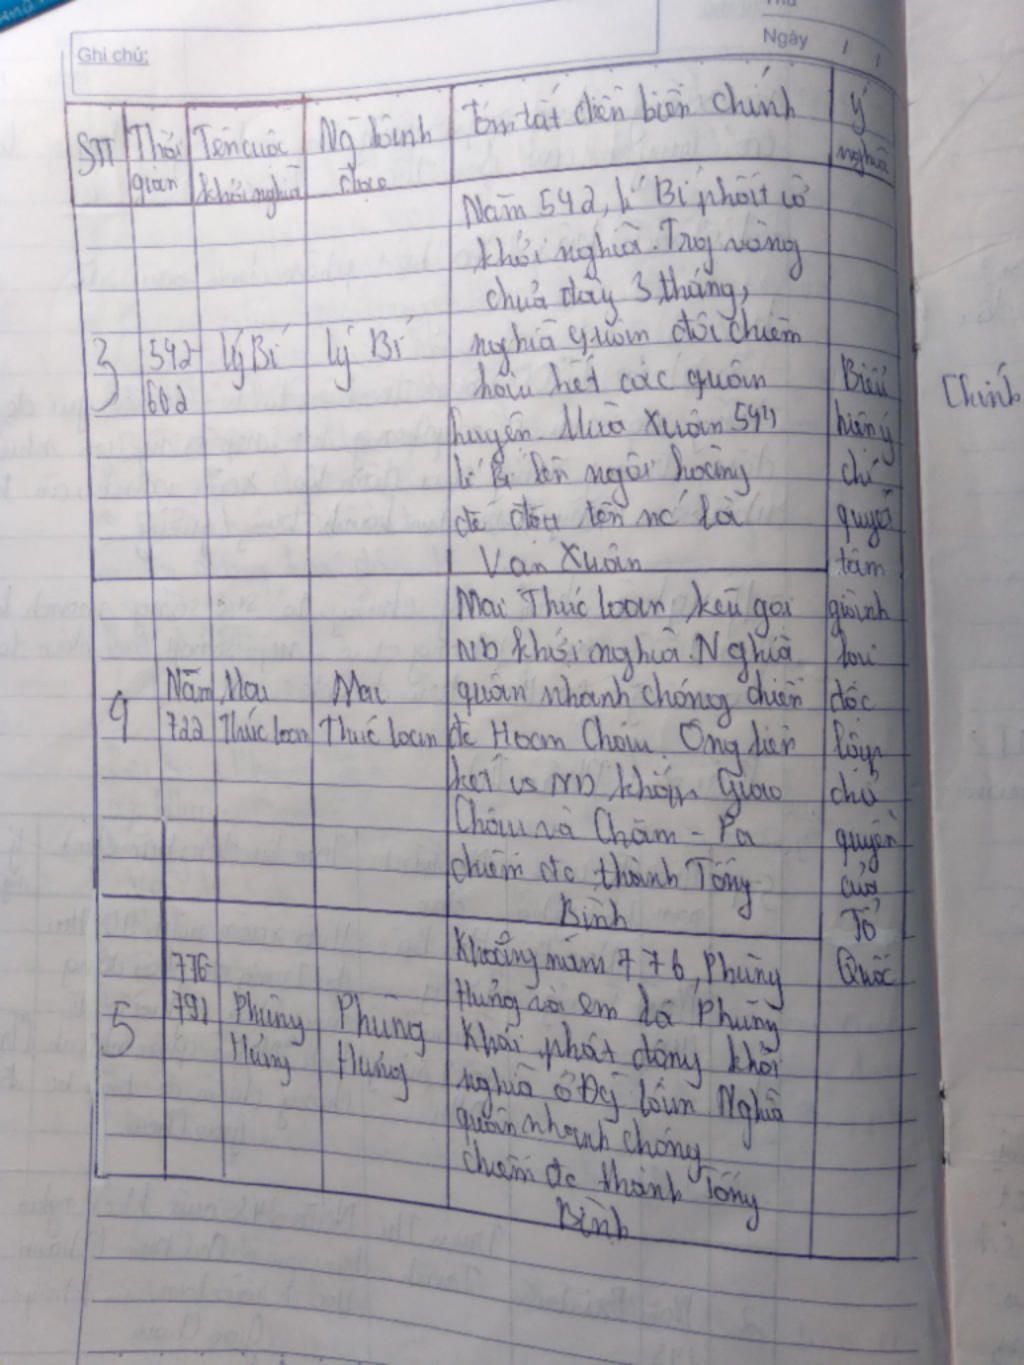 Ghi chú:
Ngày / /
STT
Thời
gian
Tên cuộc
khởi nghĩa
Ng lãnh
đạo
Tóm tắt diễn biến chính
ý
nghĩa
3
542-
602
Lý Bí
Lý Bí
Năm 542, lí Bí phất cờ
khởi nghĩa. Trg vòng
chưa đầy 3 tháng,
nghĩa quân đã chiếm
hầu hết các quận
huyện. Mùa Xuân 544
lí Bí lên ngôi hoàng
đế đặt tên nc là
Vạn Xuân
4
Năm
722
Mai
Thúc Loan
Mai
Thúc Loan
Mai Thúc Loan kêu gọi
ND khởi nghĩa. Nghĩa
quân nhanh chóng chiến
đc Hoan Châu. Ông liên
kết vs ND khắp Giao
Châu và Chăm - Pa
chiếm đc thành Tống
Bình
5
776-
791
Phùng
Hưng
Phùng
Hưng
Khoảng năm 776, Phùng
Hưng và em là Phùng
Khải phát động khởi
nghĩa ở Đg lâm Nghĩa
quân nhanh chóng
chiếm đc thành Tống
Bình
Biểu
hiện ý
chí
quyết
tâm
giành
lại
độc
lập
chủ
quyền
của
Tổ
Quốc
Chính